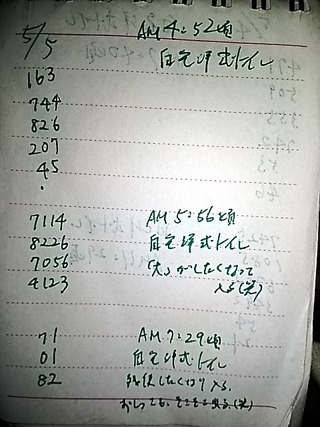 5/5 AM 4:52頃
自宅洋式トイレ
163
744
826
207
45
・
7114 AM 5:56頃
8226 自宅洋式トイレ
7056 がしたくなって
4123 入る(笑)
71 AM 7:29頃
01 自宅洋式トイレ
82 したくなり入る。
(笑)